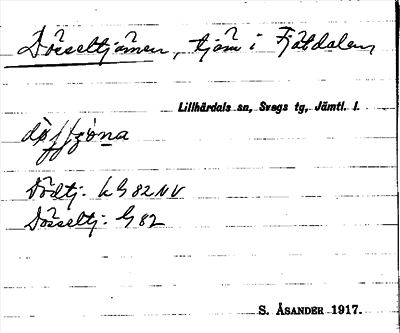 Dösseltjärnen, tjärn i Fjätdalen
Lillhärdals sn, Svegs tg, Jämtl. l.
Dödtj: LG 82 NV
Dösseltj: G 82
S. ÅSANDER 1917.